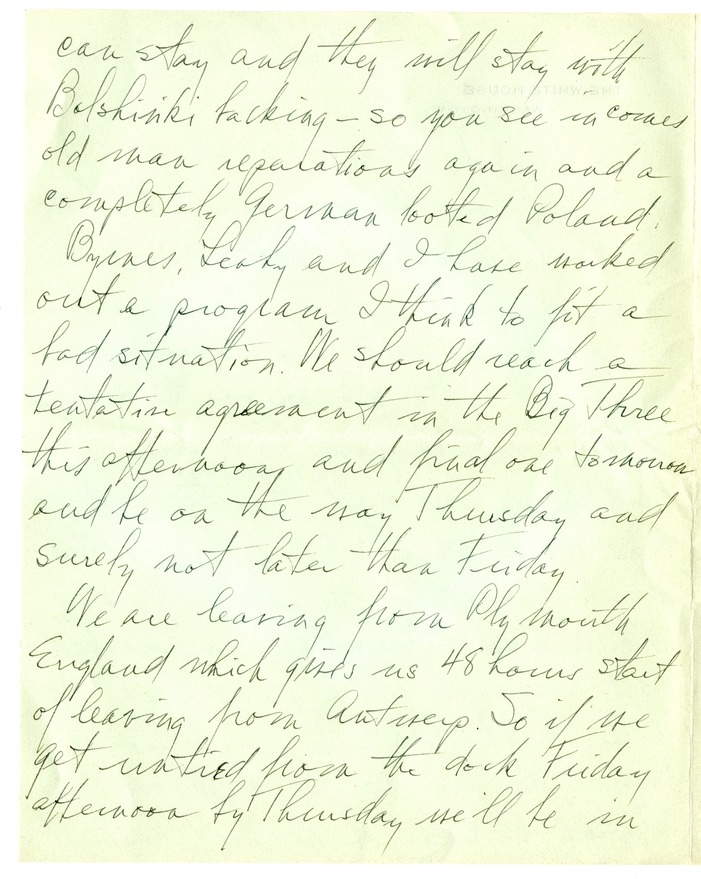 can stay and they will stay with
Bolshinki backing – so you see in comes
old man reparations again and a
completely German looted Poland.
Byrnes, Leahy and I have worked
out a program I think to fit a
bad situation. We should reach a
tentative agreement in the Big Three
this afternoon and final one tomorrow
and be on the way Thursday and
surely not later than Friday.
We are leaving from Plymouth
England which gives us 48 hours start
of leaving from Antwerp. So if we
get untied from the dock Friday
afternoon by Thursday we'll be in